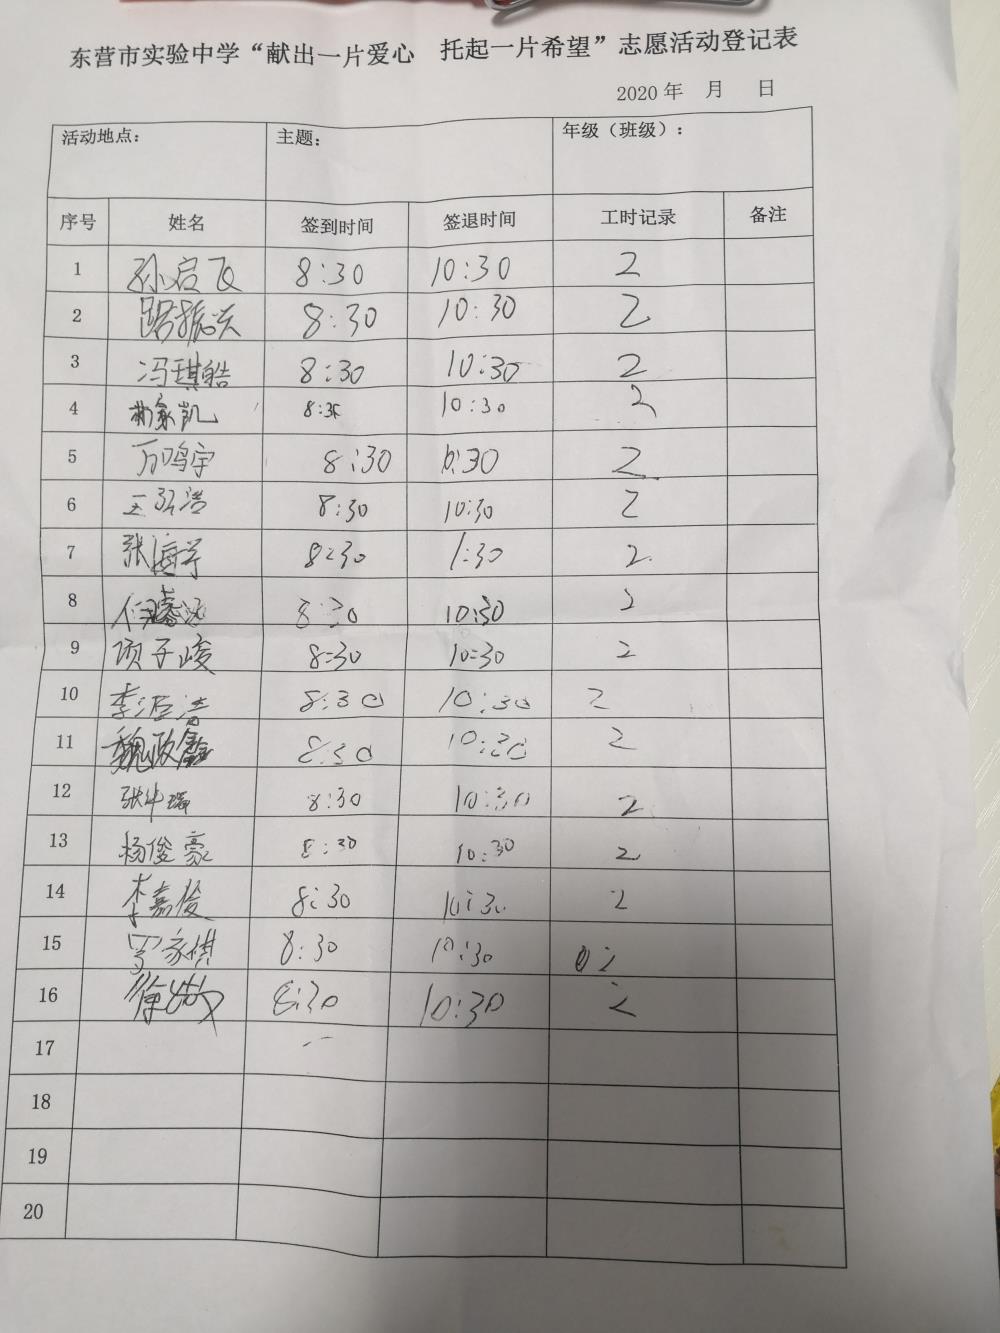 东营市实验中学“献出一片爱心 托起一片希望”志愿活动登记表
2020 年 月 日
活动地点： 主题： 年级（班级）：
序号 姓名 签到时间 签退时间 工时记录 备注
1 孙启飞 8:30 10:30 2
2 8:30 10:30 2
3 冯琪皓 8:30 10:30 2
4 家凯 8:30 10:30 2
5 万鸣宇 8:30 10:30 2
6 王弘浩 8:30 10:30 2
7 张海宇 8:30 1:30 2
8 8:30 10:30 2
9 项子峻 8:30 10:30 2
10 李浩 8:30 10:30 2
11 魏政鑫 8:30 10:30 2
12 张瑞 8:30 10:30 2
13 杨俊豪 8:30 10:30 2
14 李嘉俊 8:30 10:30 2
15 罗家祺 8:30 10:30 2
16 徐 8:30 10:30 2
17
18
19
20